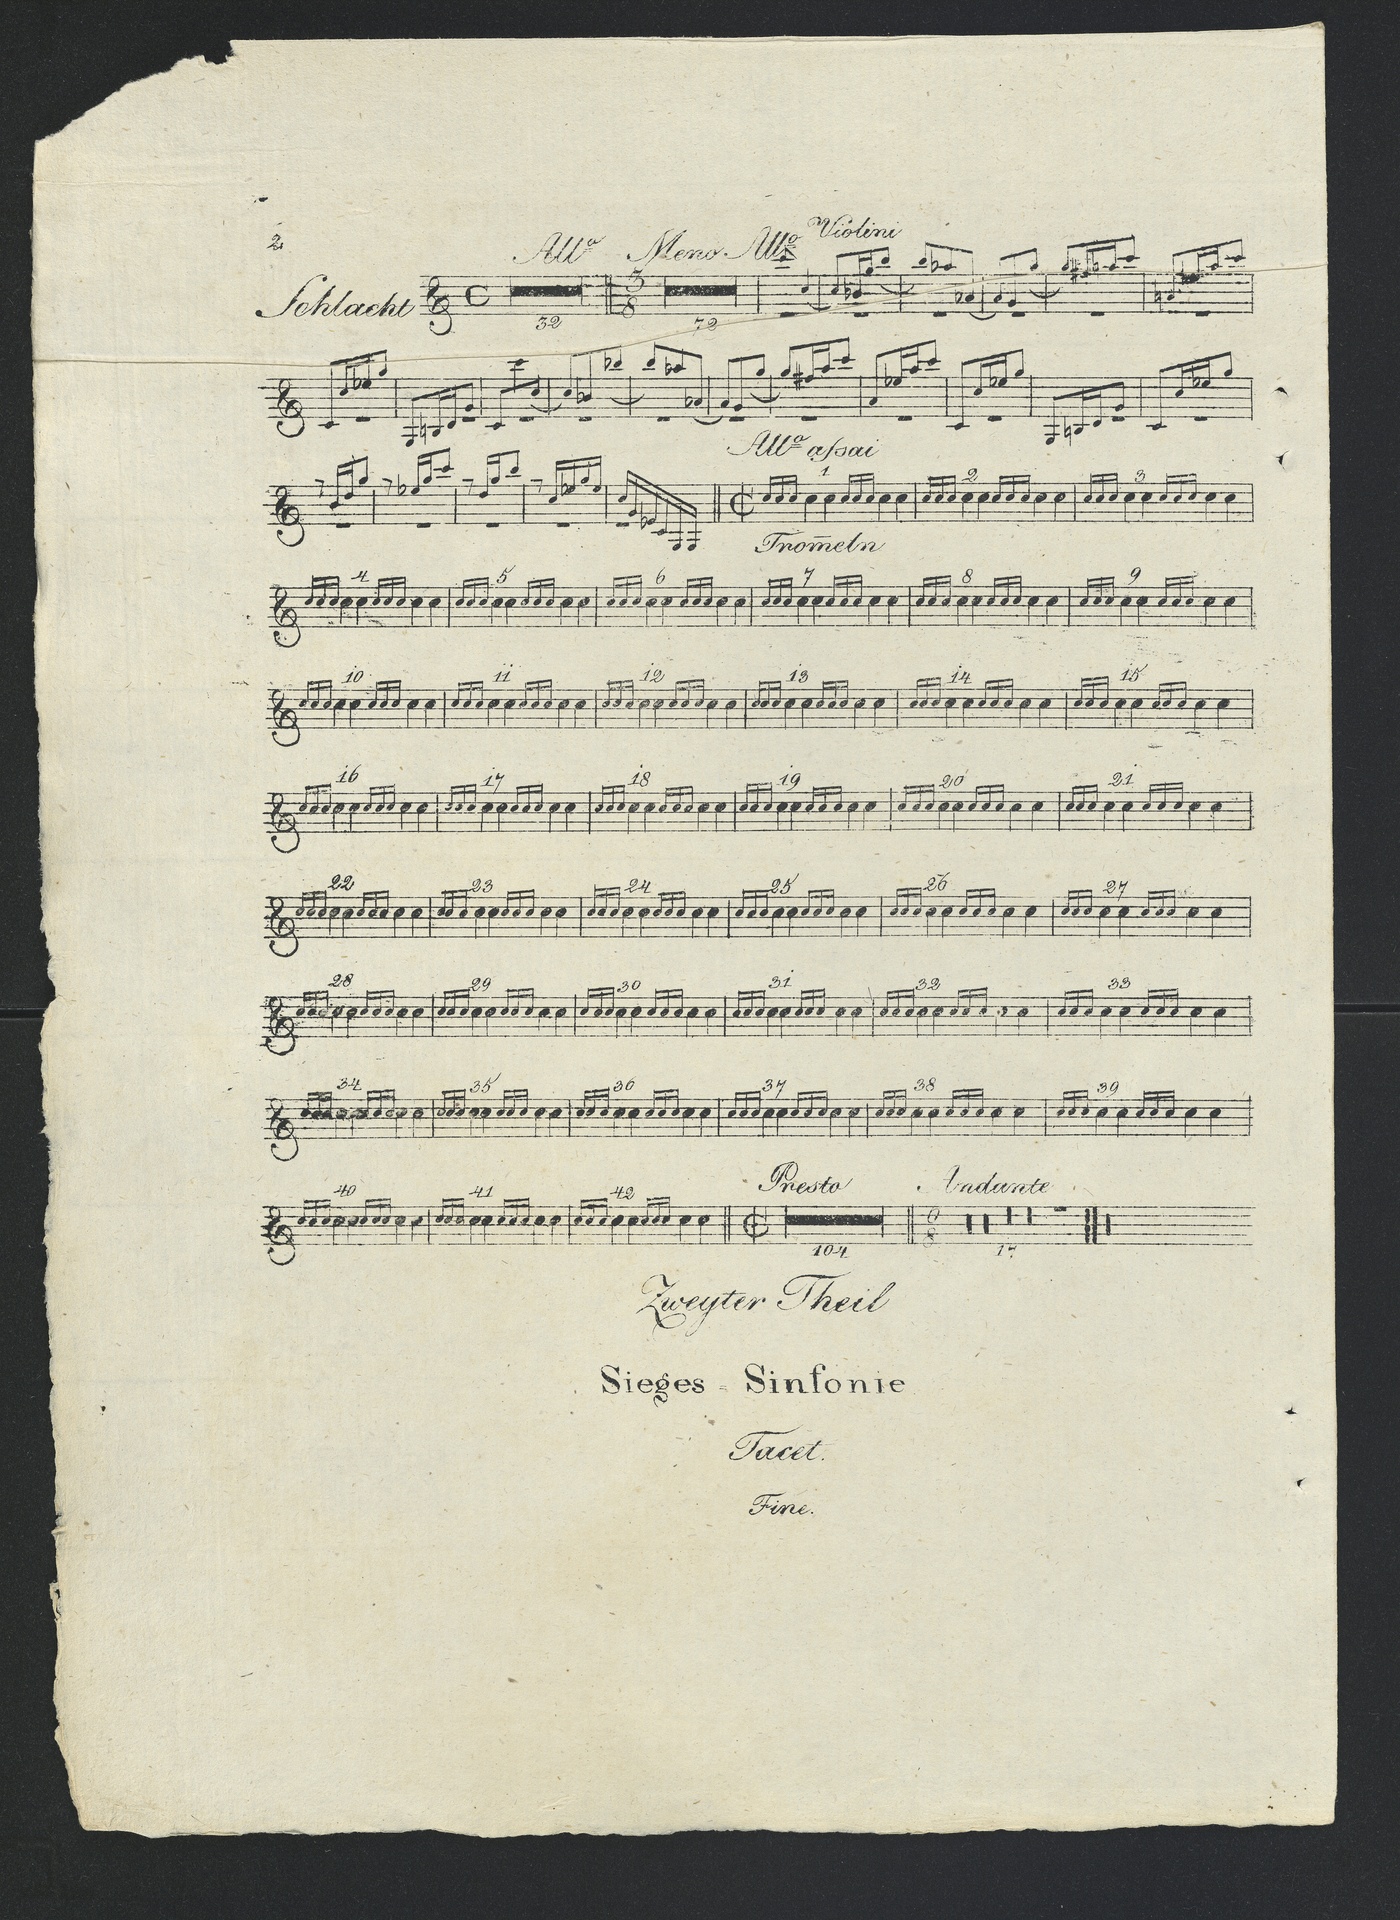 2
Allo Meno Allo Violini
Schlacht C 3/8
32 72
Allo aſsai
1 2 3
Trom̄eln
4 5 6 7 8 9
10 11 12 13 14 15
16 17 18 19 20 21
22 23 24 25 26 27
28 29 30 31 32 33
34 35 36 37 38 39
40 41 42 Presto Andante
6/8
104 17
Zweyter Theil
Sieges = Sinfonie
Tacet.
Fine.